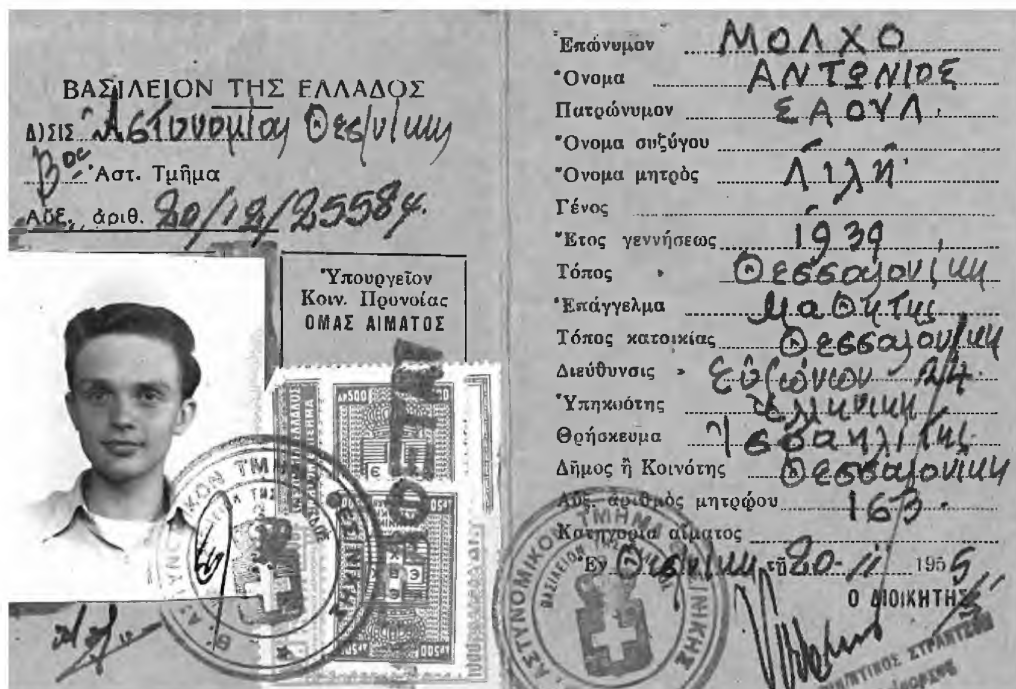 ΒΑΣΙΛΕΙΟΝ ΤΗΣ ΕΛΛΑΔΟΣ
Δ)ΣΙΣ Ἀστυνομίας Θεσ/νίκης
Βον Ἀστ. Τμῆμα
Αὔξ. ἀριθ. 20/12/25584.
Ὑπουργεῖον
Κοιν. Προνοίας
ΟΜΑΣ ΑΙΜΑΤΟΣ
Ἐπώνυμον ΜΟΛΧΟ
Ὄνομα ΑΝΤΩΝΙΟΣ
Πατρώνυμον ΣΑΟΥΛ
Ὄνομα συζύγου
Ὄνομα μητρὸς Λιλή
Γένος
Ἔτος γεννήσεως 1939
Τόπος » Θεσσαλονίκη
Ἐπάγγελμα Μαθητής
Τόπος κατοικίας Θεσσαλονίκη
Διεύθυνσις » Εὐζώνων 24
Ὑπηκοότης Ἑλληνική
Θρήσκευμα Ἰσραηλίτης
Δῆμος ἢ Κοινότης Θεσσαλονίκη
Αὔξ. ἀριθμὸς μητρώου 163.
Κατηγορία αἵματος
Ἐν Θεσ/νίκῃ τῇ 20-11 1955
Ο ΔΙΟΙΚΗΤΗΣ